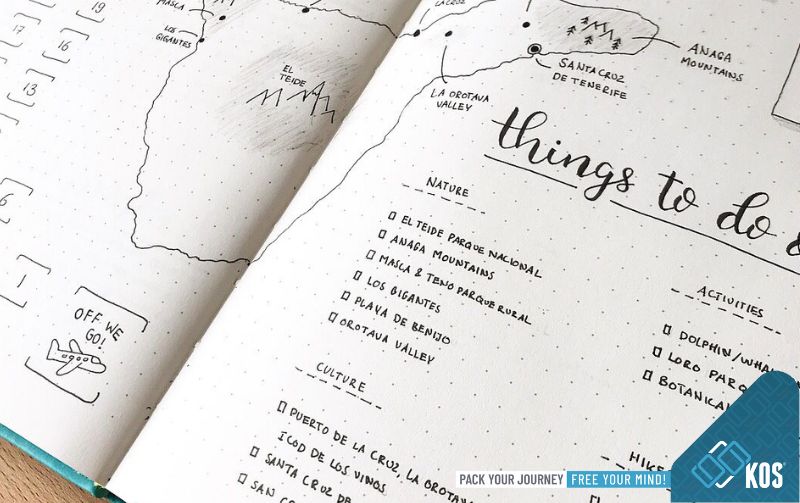 19
17
16
13
6
1
OFF WE
GO!
MASCA
LOS
GIGANTES
EL
TEIDE
LA CRUZ
LA OROTAVA
VALLEY
SANTA CRUZ
DE TENERIFE
ANAGA
MOUNTAINS
things to do &
NATURE
EL TEIDE PARQUE NACIONAL
ANAGA MOUNTAINS
MASCA & TENO PARQUE RURAL
LOS GIGANTES
PLAYA DE BENIJO
OROTAVA VALLEY
CULTURE
PUERTO DE LA CRUZ, LA OROTAVA
ICOD DE LOS VINOS
SANTA CRUZ DE
SAN
ACTIVITIES
DOLPHIN/WHA
LORO PARQ
BOTANICA
HIKE
PACK YOUR JOURNEY FREE YOUR MIND!
KOS®